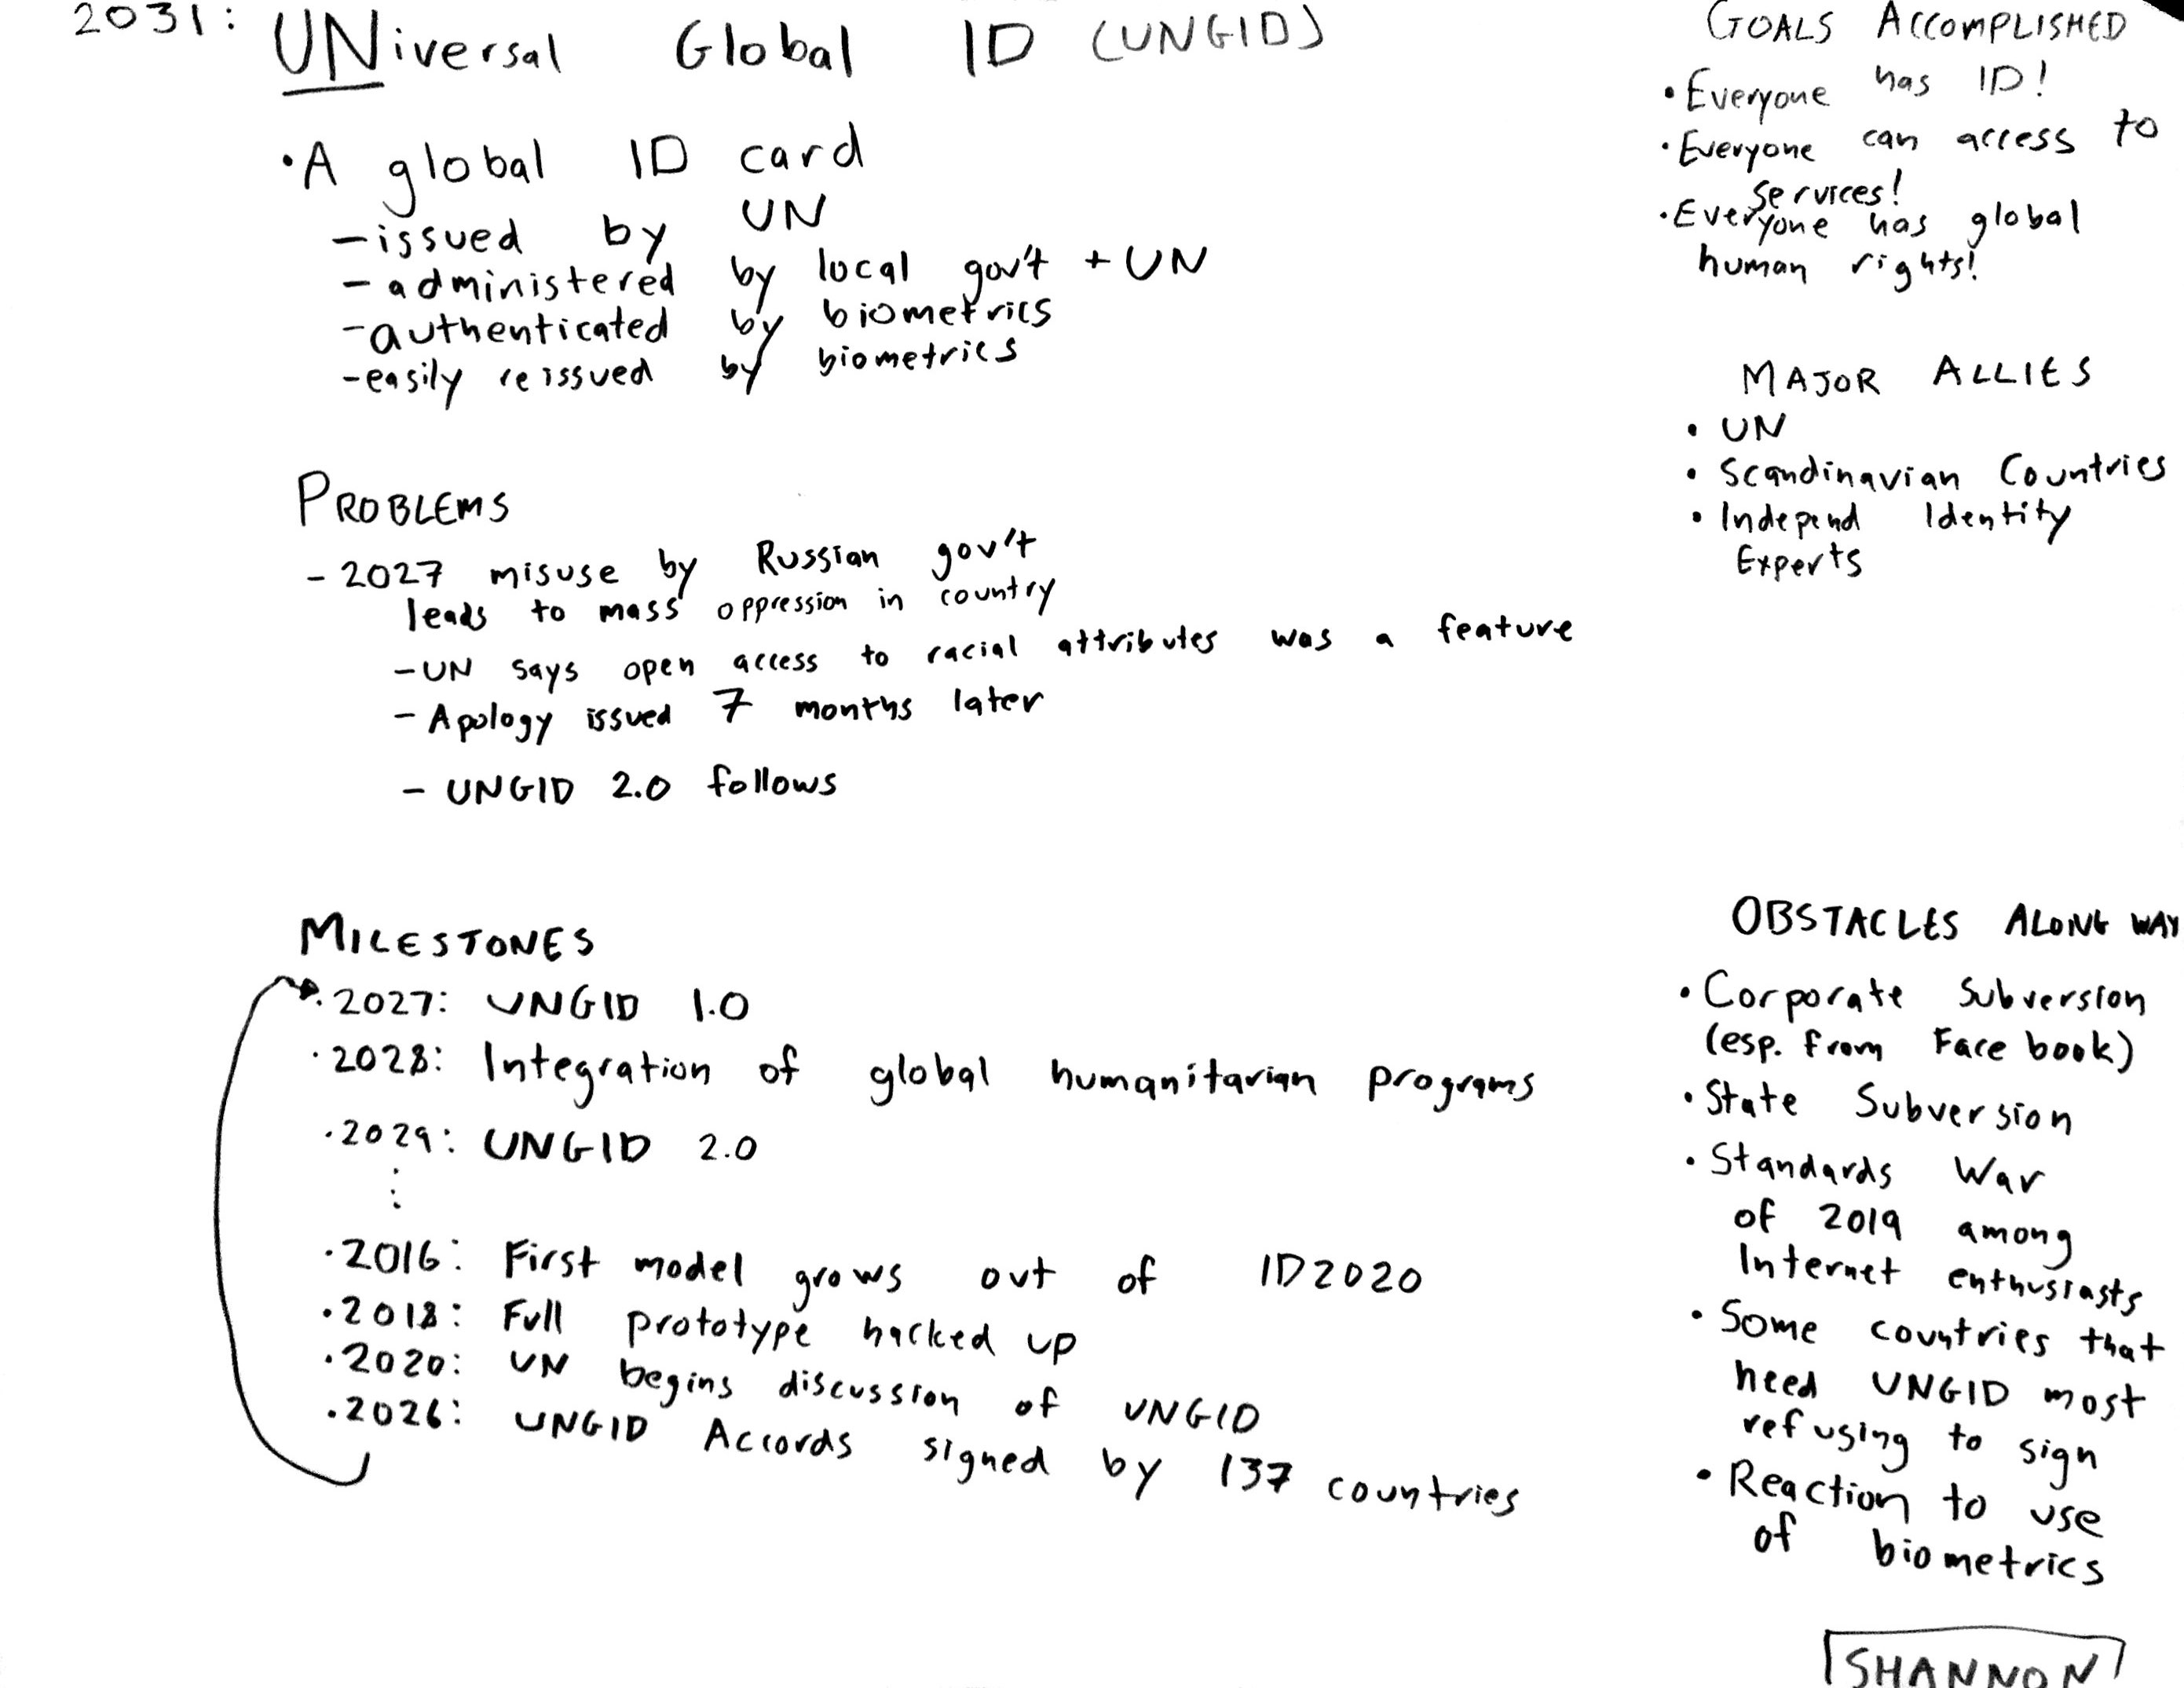 2031: UNiversal Global ID (UNGID)
•A global ID card
-issued by UN
-administered by local gov't + UN
-authenticated by biometrics
-easily reissued by biometrics
PROBLEMS
- 2027 misuse by Russian gov't
leads to mass oppression in country
-UN says open access to racial attributes was a feature
- Apology issued 7 months later
- UNGID 2.0 follows
MILESTONES
•2027: UNGID 1.0
•2028: Integration of global humanitarian programs
•2029: UNGID 2.0
⋮
•2016: First model grows out of ID2020
•2018: Full prototype hacked up
•2020: UN begins discussion of UNGID
•2026: UNGID Accords signed by 137 countries
GOALS ACCOMPLISHED
•Everyone has ID!
•Everyone can access to
services!
•Everyone has global
human rights!
MAJOR ALLIES
• UN
• Scandinavian Countries
• Independ Identity
Experts
OBSTACLES ALONG WAY
• Corporate Subversion
(esp. from Facebook)
• State Subversion
• Standards War
of 2019 among
Internet enthusiasts
• Some countries that
need UNGID most
refusing to sign
• Reaction to use
of biometrics
SHANNON